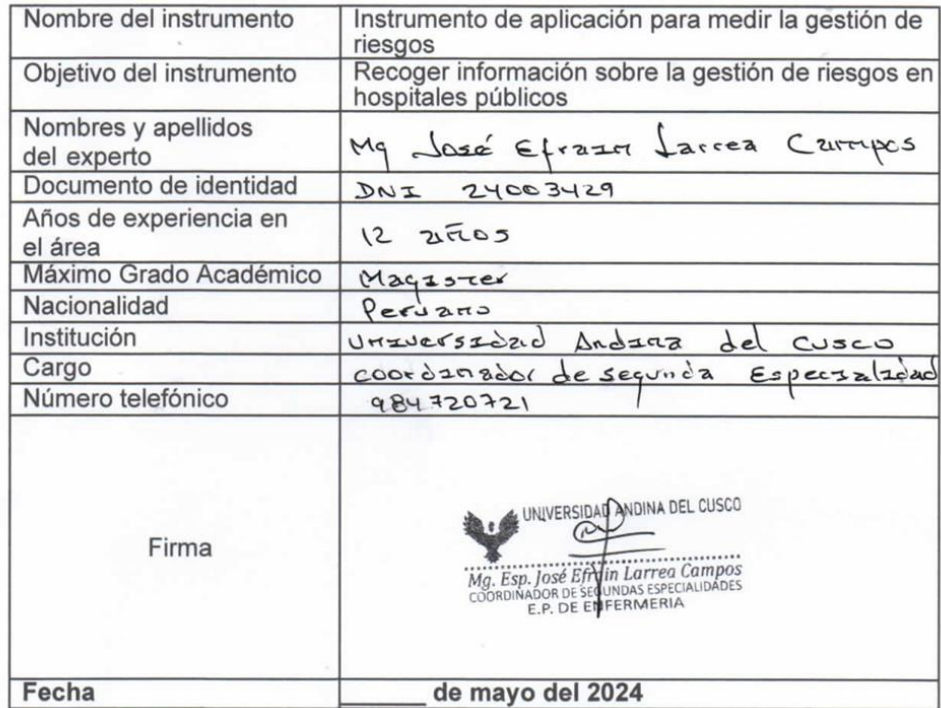 Nombre del instrumento
Instrumento de aplicación para medir la gestión de
riesgos
Objetivo del instrumento
Recoger información sobre la gestión de riesgos en
hospitales públicos
Nombres y apellidos
del experto
Mg José Efrain Larrea Campos
Documento de identidad
DNI 24003429
Años de experiencia en
el área
12 años
Máximo Grado Académico
Magister
Nacionalidad
Peruano
Institución
Universidad Andina del Cusco
Cargo
coordinador de segunda Especialidad
Número telefónico
984720721
Firma
UNIVERSIDAD ANDINA DEL CUSCO
Mg. Esp. José Efraín Larrea Campos
COORDINADOR DE SEGUNDAS ESPECIALIDADES
E.P. DE ENFERMERIA
Fecha
______ de mayo del 2024